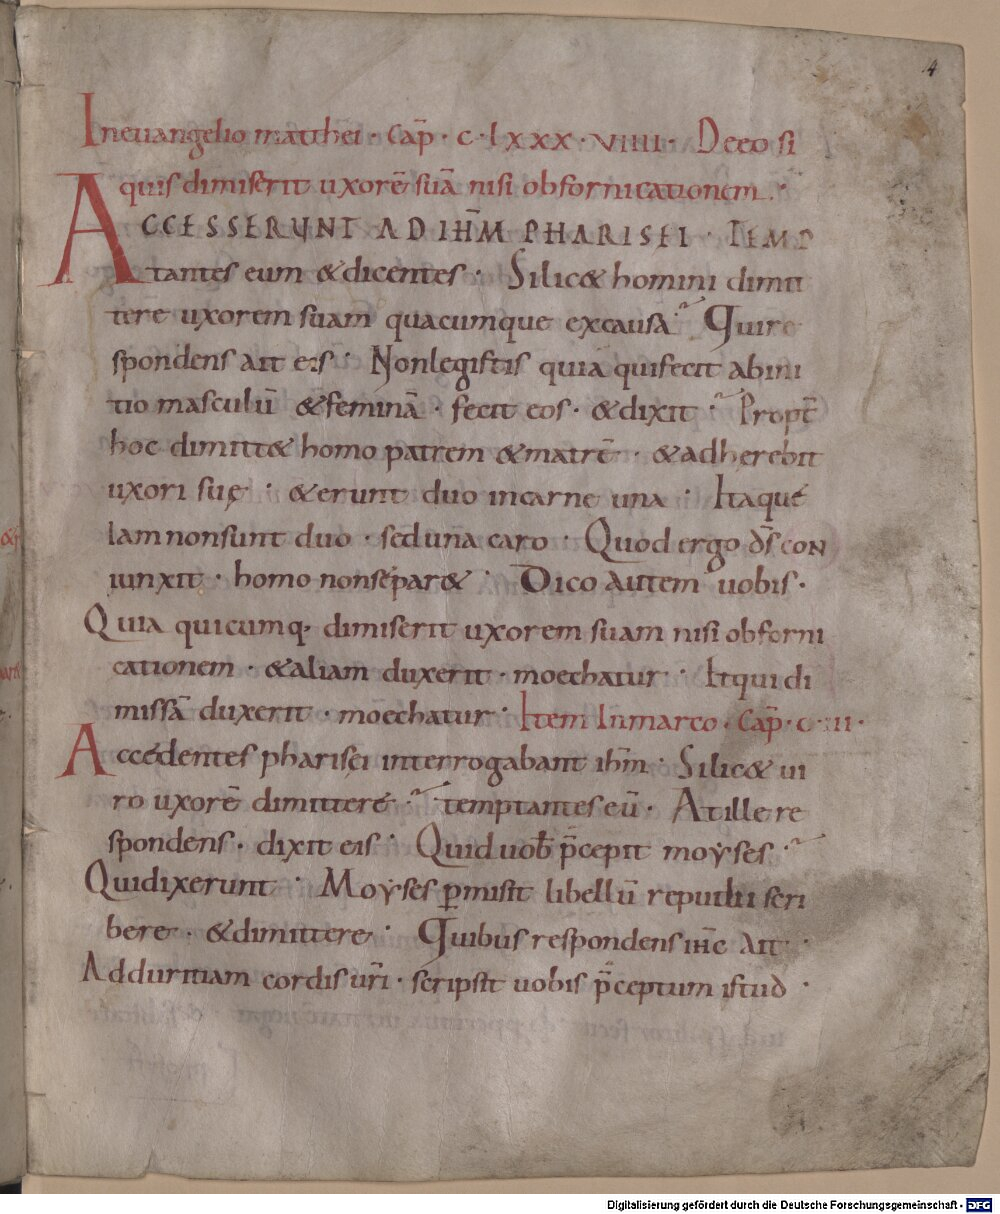 4
In euangelio matthei · cap̄ · c · lxxx · viiii · De eo si
quis dimiserit uxorē suā nisi ob fornicationem ·
ACCESSERUNT AD IH̄M PHARISEI · TEMP
tantes eum & dicentes · Si lic& homini dimit
tere uxorem suam quacumque ex causa · Qui re
spondens ait eis · Non legistis quia qui fecit ab ini
tio masculū & feminā · fecit eos · & dixit · Propt̄
hoc dimitt& homo patrem & matrē · & adherebit
uxori suę · & erunt duo in carne una · Itaque
Iam non sunt duo · sed una caro · Quod ergo d̄s con
iunxit · homo non separ& · Dico autem uobis ·
Quia quicumq· dimiserit uxorem suam nisi ob forni
cationem · & aliam duxerit · moechatur · Et qui di
missā duxerit · moechatur · Item In marco · cap̄ · c · iii ·
Accedentes pharisei interrogabant ih̄m · Si lic& ui
ro uxorē dimittere · temptantes eū · At ille re
spondens · dixit eis · Quid uob̄ p̄cepit moẏses ·
Qui dixerunt · Moẏses ꝑmisit libellū repudii scri
bere · & dimittere · Quibus respondens ih̄c ait ·
Ad duritiam cordis ur̄i · scripsit uobis p̄ceptum istud ·
&
Digitalisierung gefördert durch die Deutsche Forschungsgemeinschaft - DFG